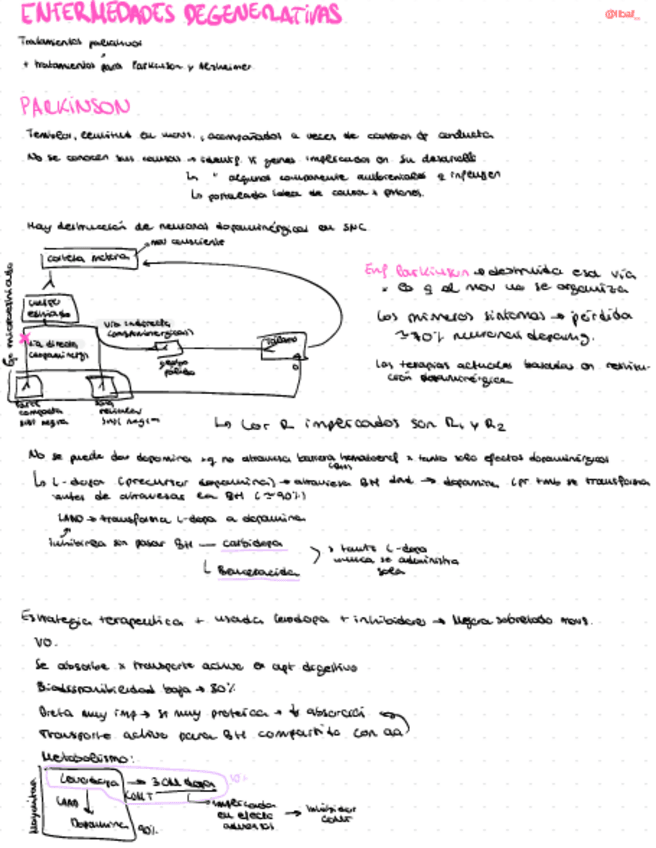 ENFERMEDADES DEGENERATIVAS
@llbal_
Tratamientos paliativos
+ tratamientos para Parkinson y Alzheimer
PARKINSON
Temblor, lentitud en movs., acompañados a veces de cambios de conducta
No se conocen sus causas → identif. genes implicados en su desarrollo
↳ " algunos componente ambientales q influyen
↳ idea de causa
Hay destrucción de neuronas dopaminérgicas en SNC
mov consciente
corteza motora
cuerpo estriado
Vía indirecta
vía directa
globo pálido
Tálamo
parte compacta sust negra
parte reticular sust negra
Enf Parkinson → destruida esa vía
x eso q el mov no se organiza
Los primeros síntomas → pérdida
≃ 70% neuronas dopaming.
Las terapias actuales basadas en restitu-
ción dopaminérgica
↳ Los R implicados son R1 y R2
No se puede dar dopamina xq no atraviesa barrera hematoencef x tanto solo efectos dopaminérgicos
(BH)
↳ L-dopa (precursor dopamina) → atraviesa BH → dopamina (pr tmb se transforma
antes de atravesar la BH (≃ 90%)
LAAD → transforma L-dopa a dopamina
inhibirla sin pasar BH — carbidopa
↳ Benseracida
x tanto L-dopa
nunca se administra
sola
Estrategia terapeutica + usada: Levodopa + inhibidores → Mejora sobretodo movs.
VO.
Se absorbe x transporte activo en apt digestivo
Biodisponibilidad baja → 30%
Dieta muy imp → si muy proteica → ↓ absorción
Transporte activo para BH compartido con aa
Metabolismo:
Mayoritaria
Levodopa → 3 OM dopa
COMT
LAAD
Dopamina
90%
10%
↳ implicada en efecto adversos → inhibidor COMT